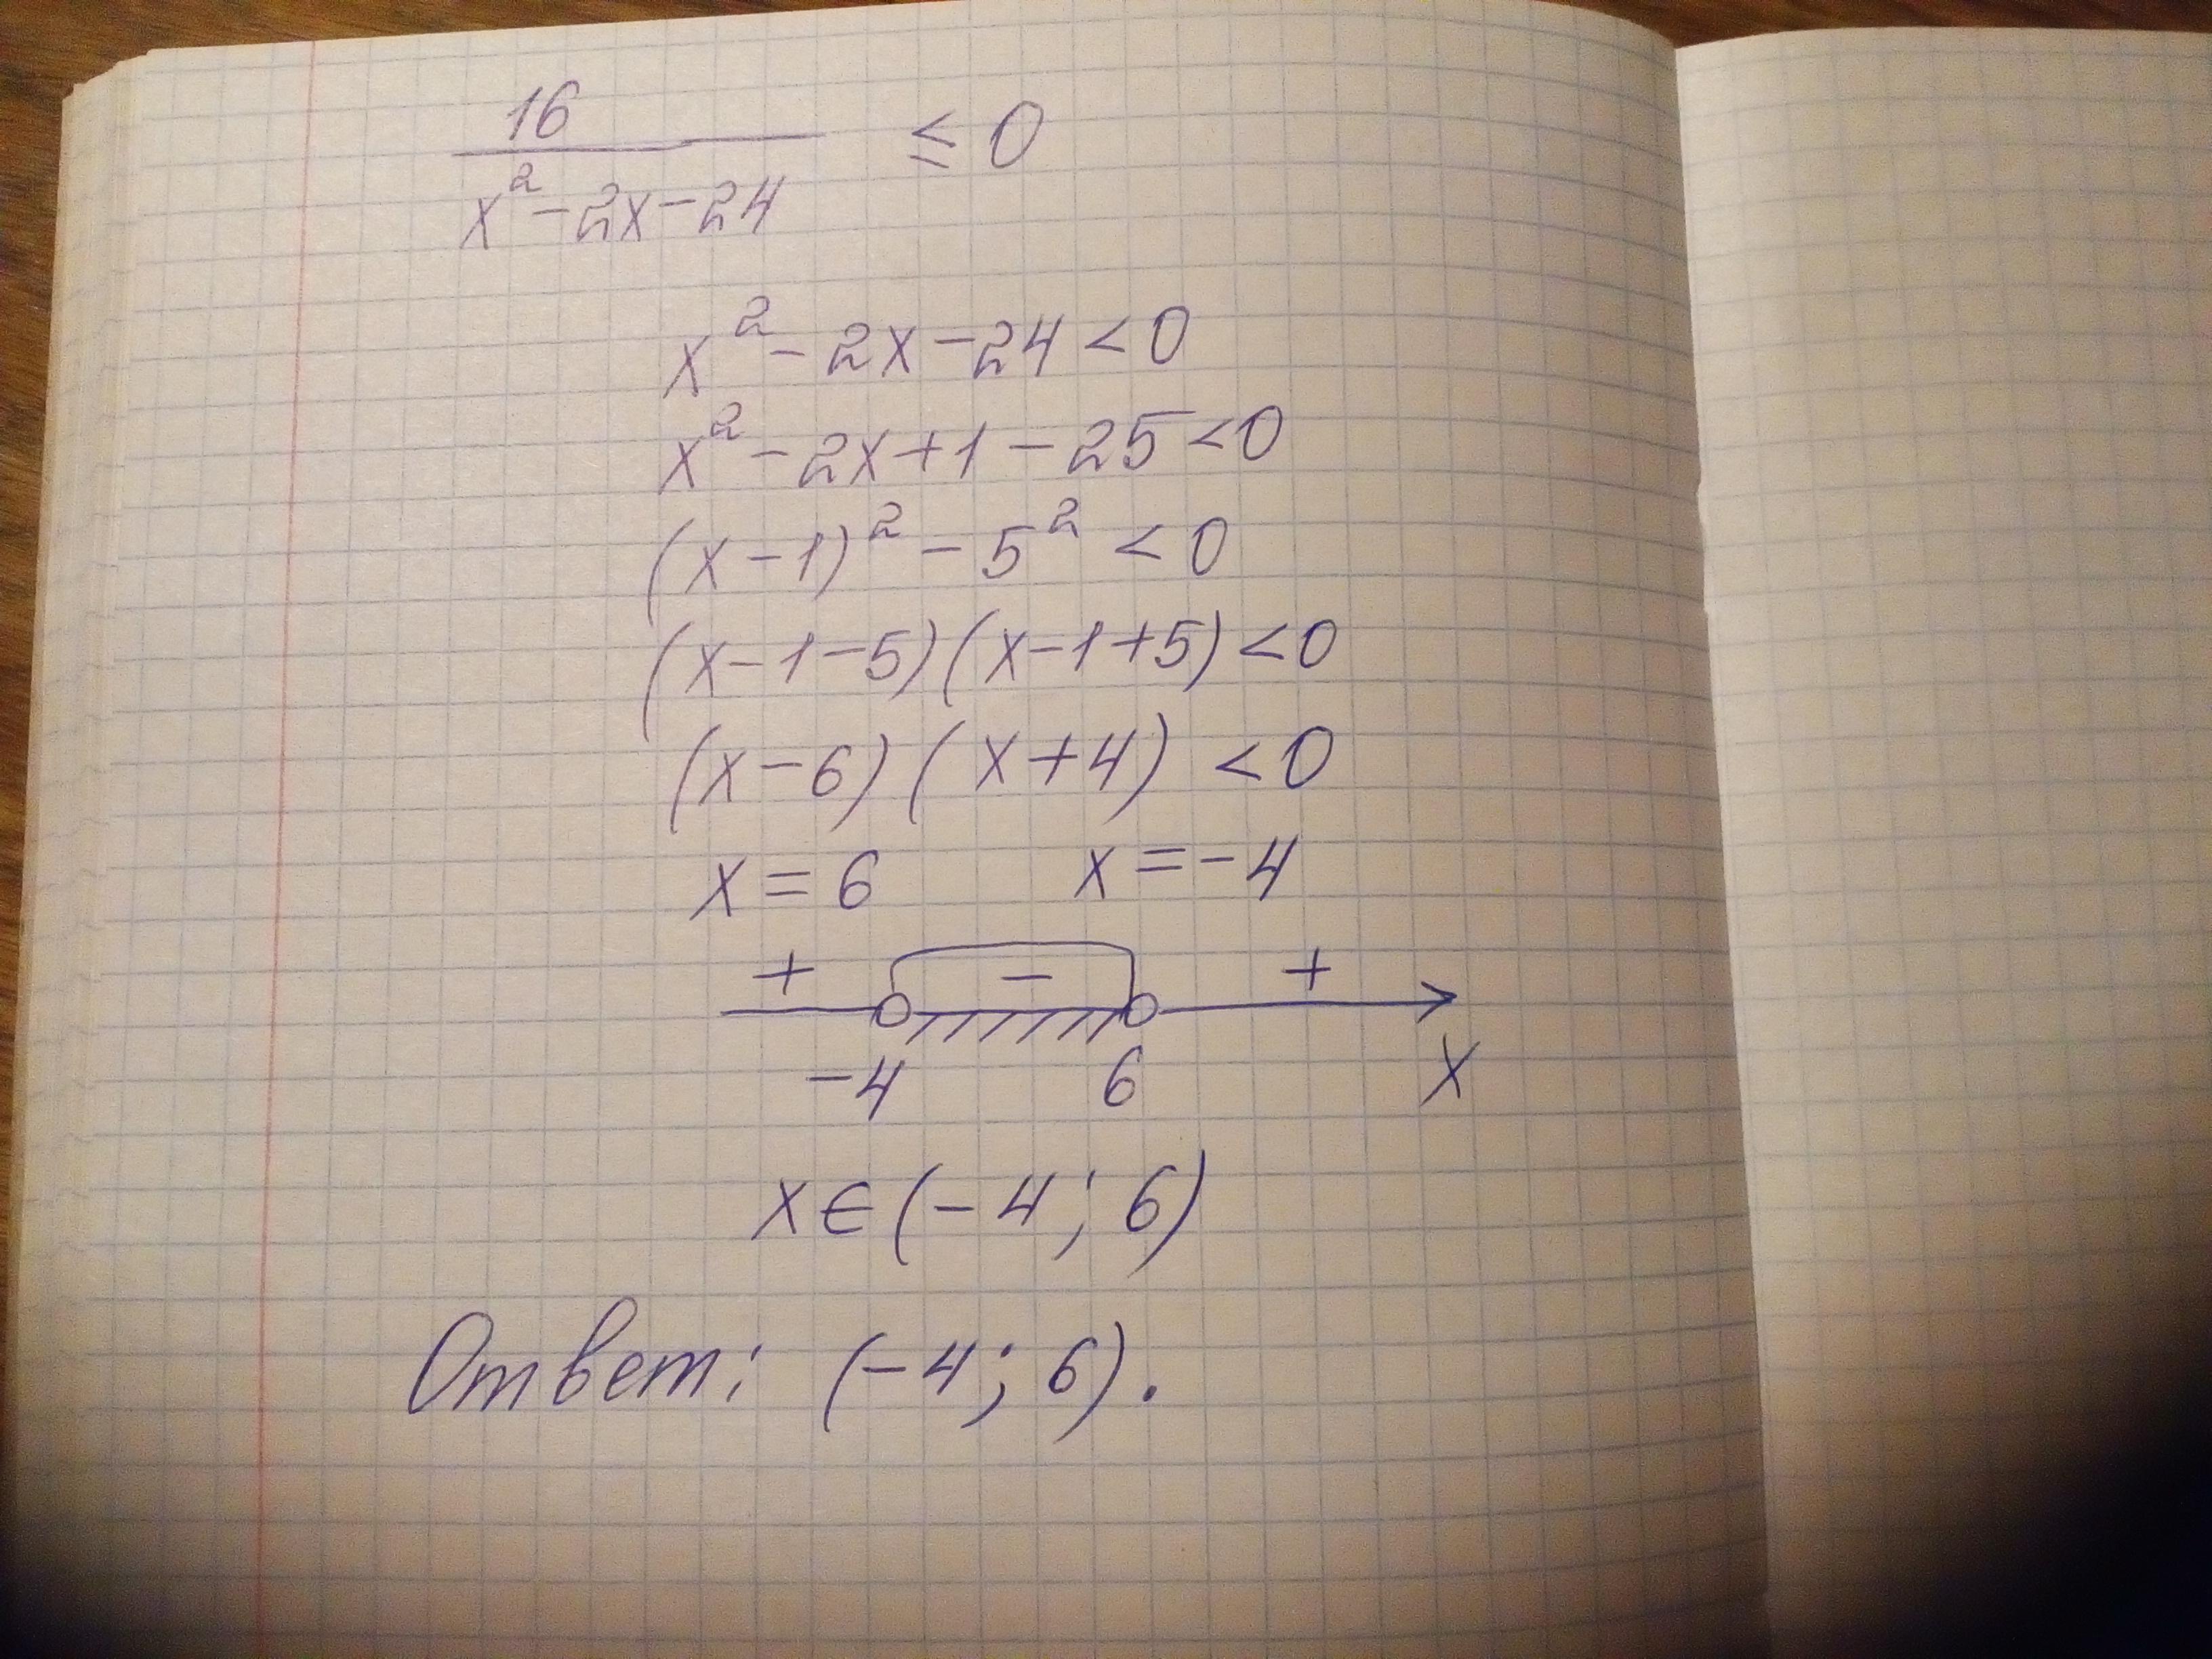 16
x² - 2x - 24 ≤ 0
x² - 2x - 24 < 0
x² - 2x + 1 - 25 < 0
(x - 1)² - 5² < 0
(x - 1 - 5)(x - 1 + 5) < 0
(x - 6)(x + 4) < 0
x = 6 x = -4
+ - +
-4 6 x
x ∈ (-4; 6)
Ответ: (-4; 6).